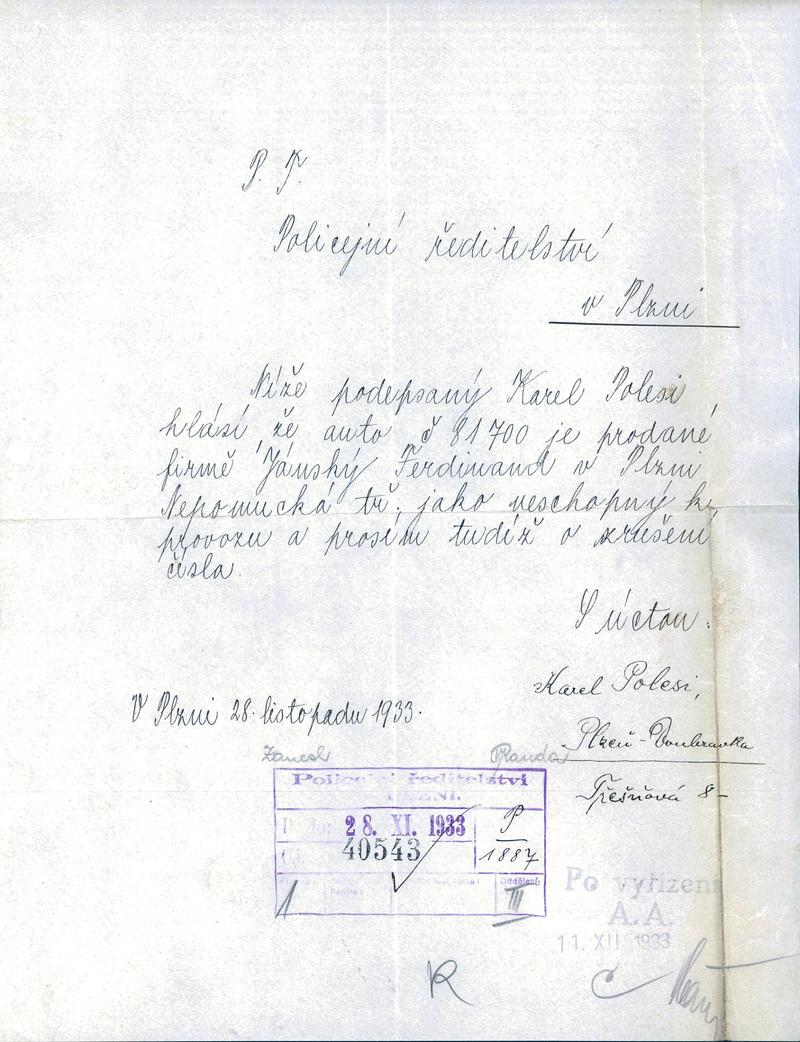 P. T.
Policejní ředitelství
v Plzni
Níže podepsaný Karel Polesi
hlásí, že auto č 81700 je prodané
firmě Jánský Ferdinand v Plzni
Nepomucká tř. jako neschopný k
provozu a prosím tudíž o zrušení
čísla.
S úctou:
Karel Polesi,
V Plzni 28. listopadu 1933.
Plzeň-Doubravka
Třešňová 8-
Policejní ředitelství
28. XI. 1933
P
40543
1887
Oddělení:
1
III
Po vyřízení
A.A.
11. XII 1933
R